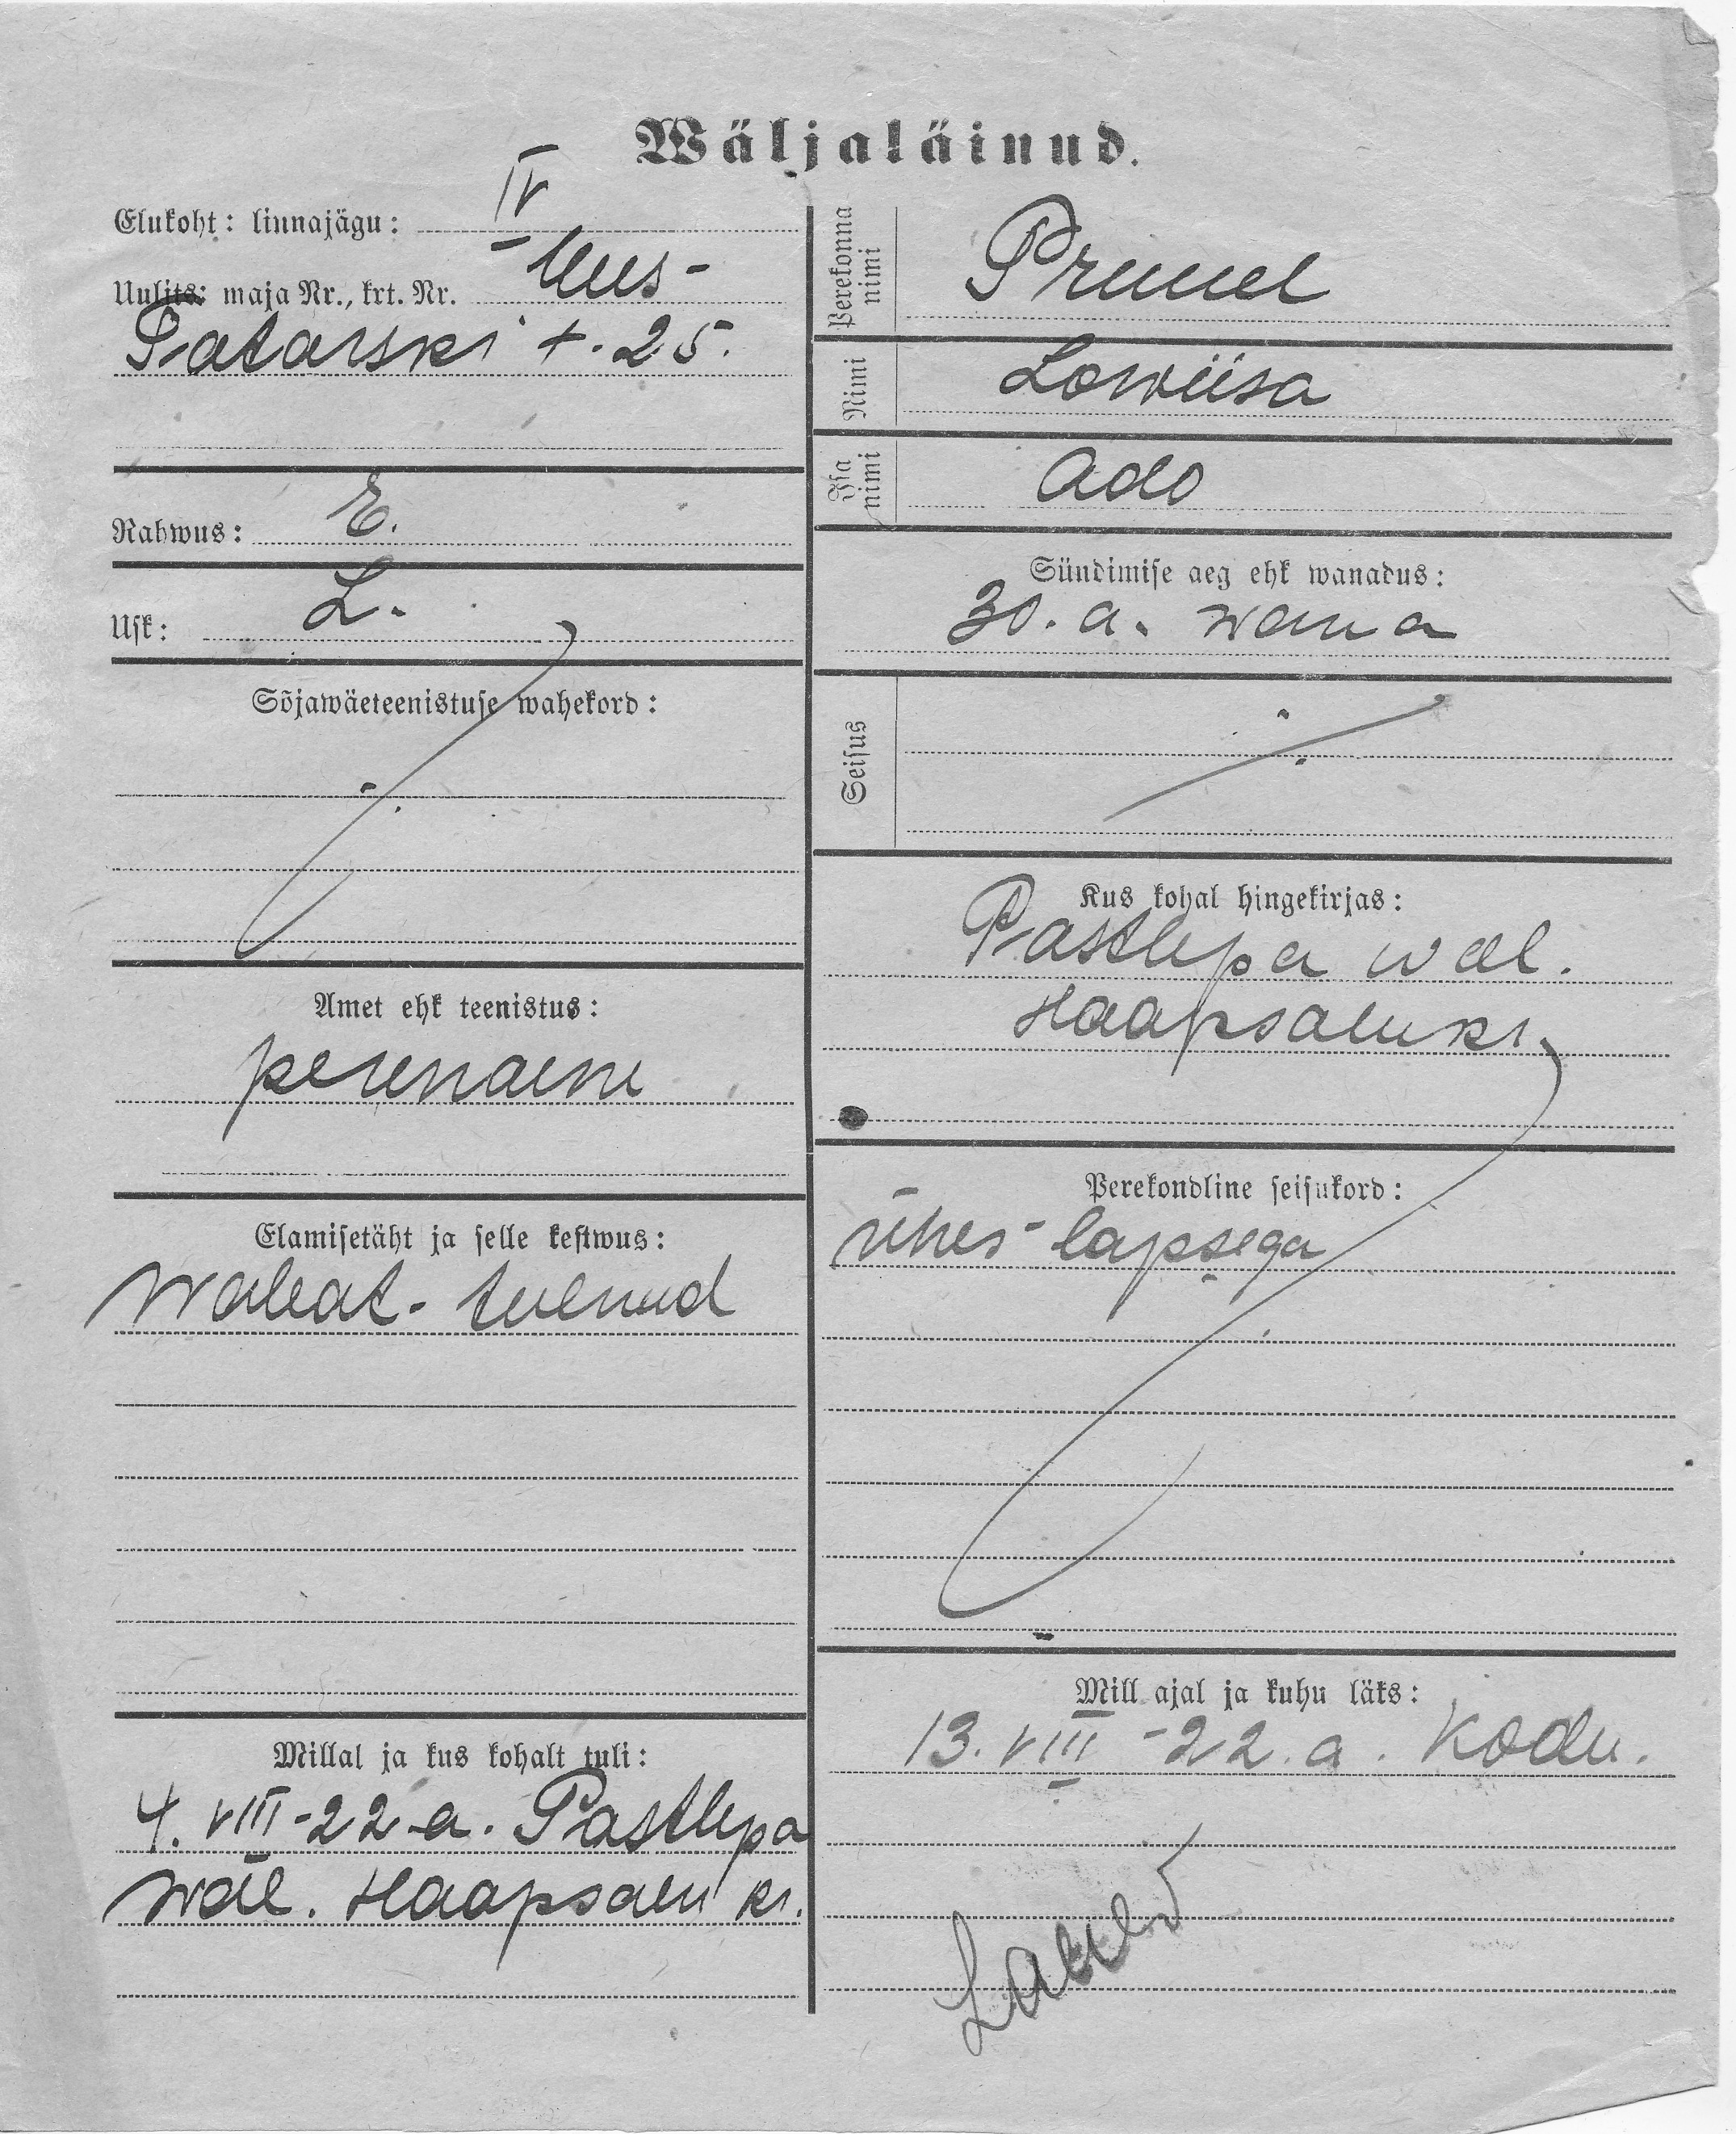 Wäljaläinud.
Elukoht: linnajägu: IV
Uulits: maja Nr., krt. Nr. Uus-
Tatarski t. 25.
Rahwus: E.
Usk: L.
Sõjawäeteenistuse wahekord:
Amet ehk teenistus:
perenaene
Elamisetäht ja selle kestwus:
waleat. tulenud
Millal ja kus kohalt tuli:
4. VIII-22 a. Pastlepa
wal. Haapsalu kr.
Perekonna nimi
Pruuel
Nimi
Lowiisa
Isa nimi
Ado
Sündimise aeg ehk wanadus:
30. a. wana
Seisus
Kus kohal hingekirjas:
Pastlepa wal.
Haapsalu kr.
Perekondline seisukord:
ühes lapsega
Mill ajal ja kuhu läks:
13. VIII -22. a. Kodu.